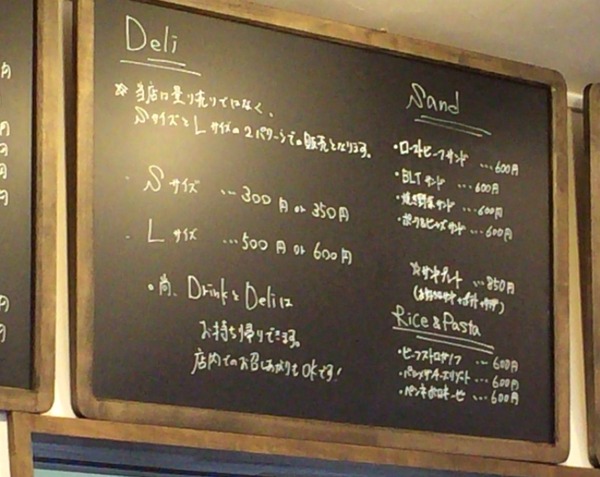 Deli
☆当店は量り売りではなく、
SサイズとLサイズの2パターンでの販売となります。
・Sサイズ …300円or350円
・Lサイズ …500円or600円
・尚、DrinkとDeliは
お持ち帰りできます。
店内でのお召しあがりもOKです!
Sand
・ローストビーフサンド …600円
・BLTサンド …600円
・焼き野菜サンド …600円
・ …600円
☆サンドプレート …850円
Rice & Pasta
・ビーフストロガノフ …600円
・パルメザンチーズリゾット …600円
・ペンネボロネーゼ …600円
円
円
円
円
円
円
円